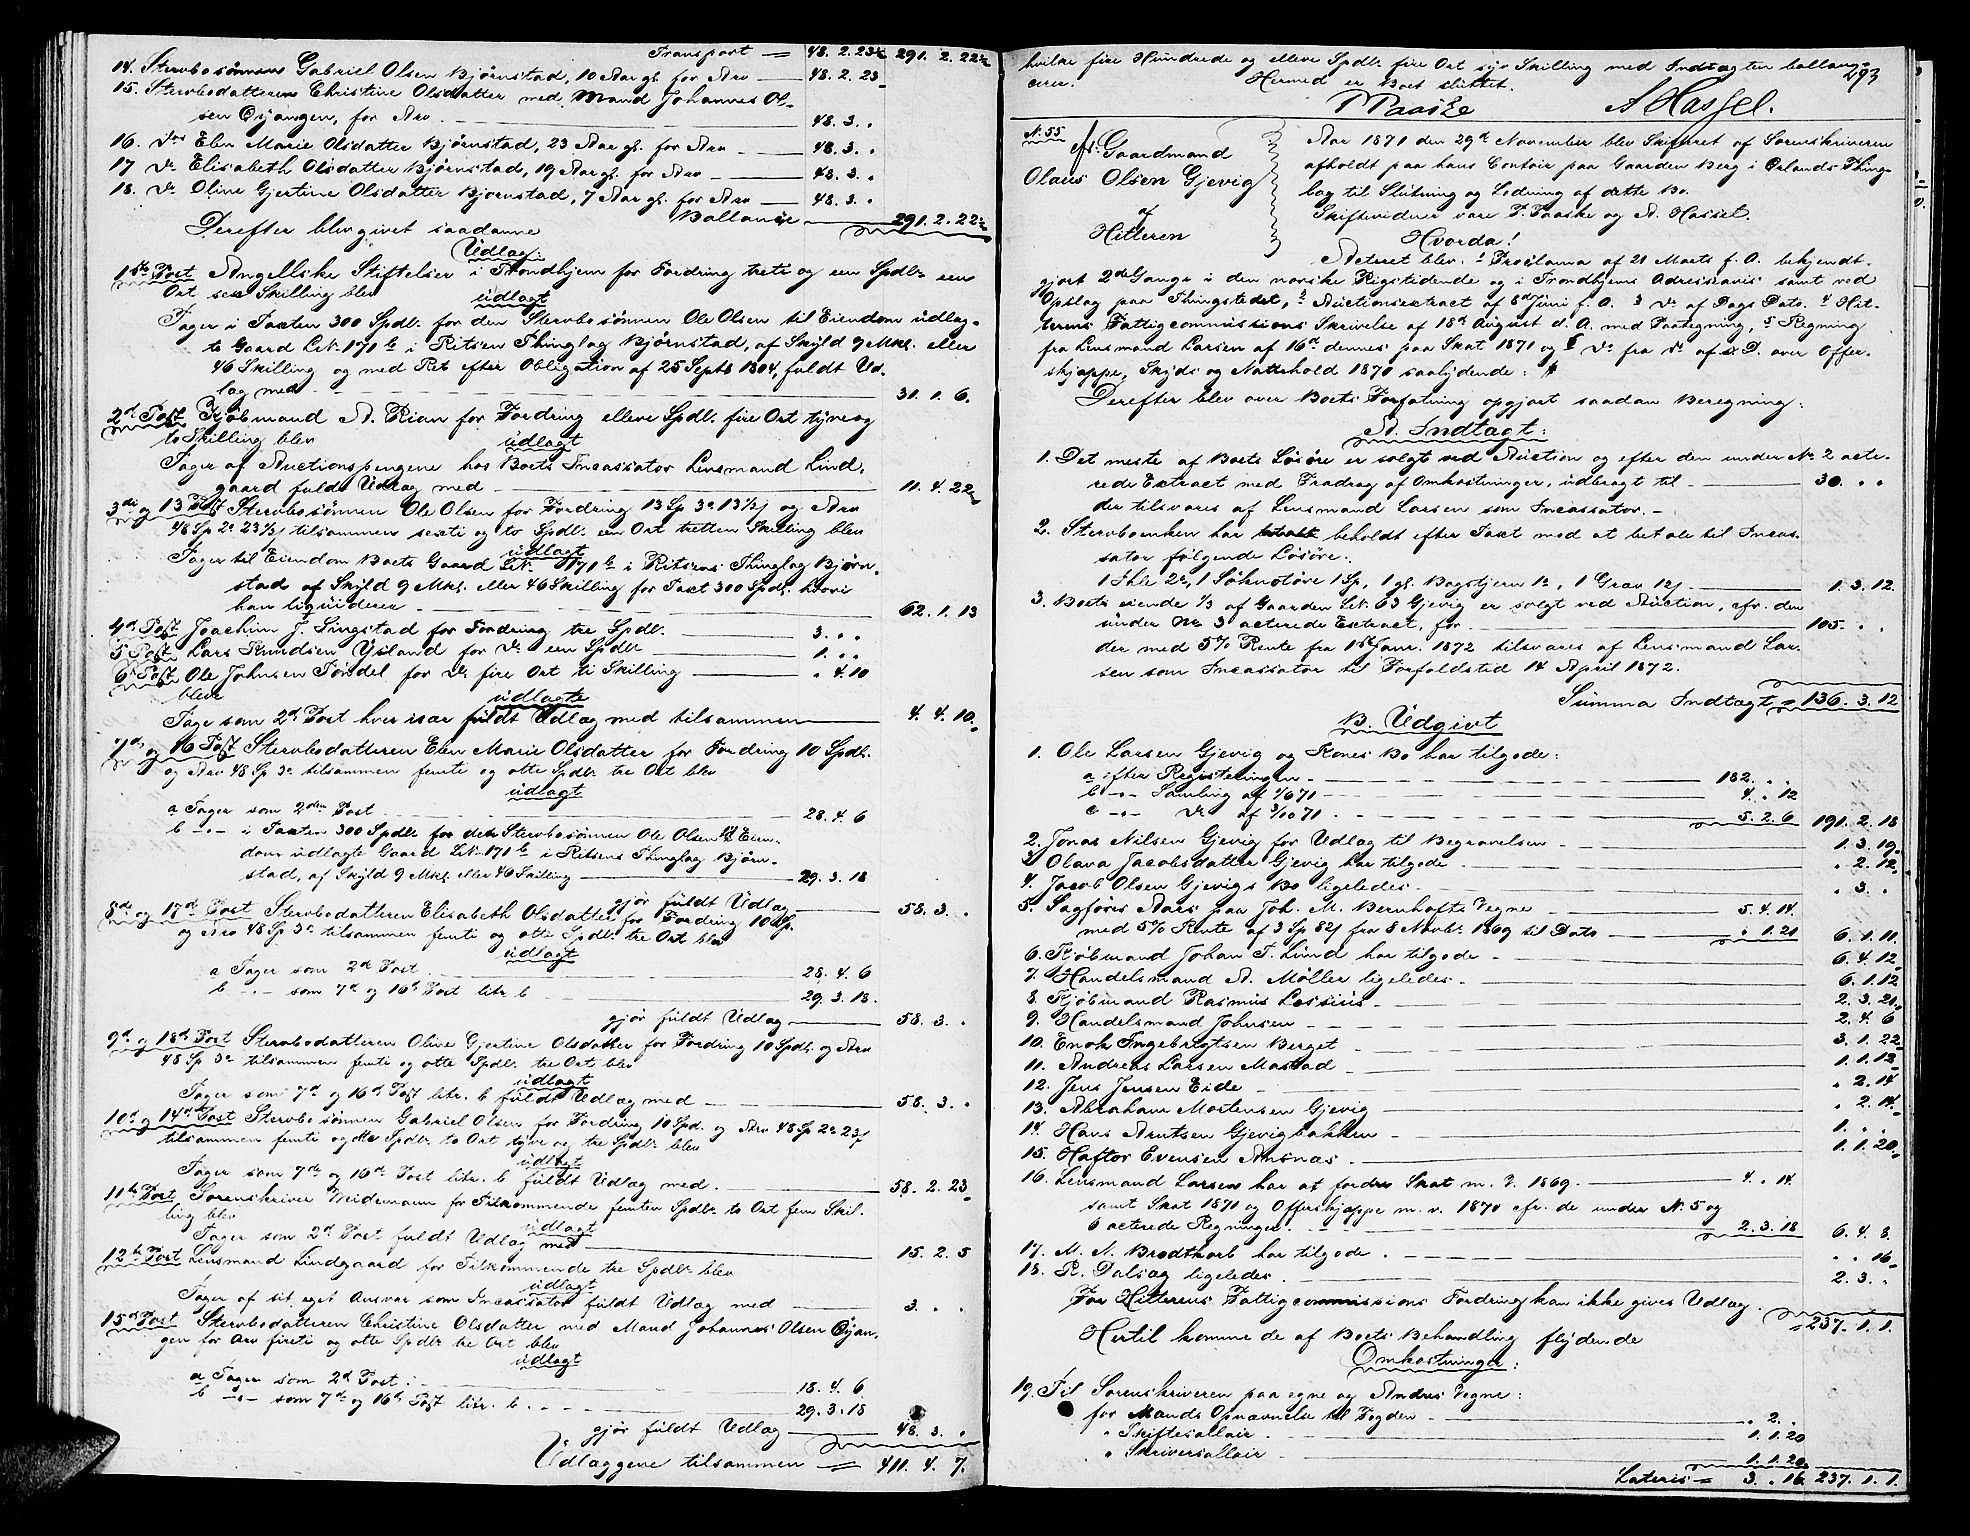 Transport = 48. 2. 23½ 291. 2. 22½
14. Stervbosønnen Gabriel Olsen Bjørnstad, 10 Aar gl. for Arv — 48. 2. 23
15. Stervbodatteren Christine Olsdatter med Mand Johannes Ol-
sen Øyangen, for Arv. — 48. 3. „
16. do Elen Marie Olsdatter Bjørnstad, 23 Aar gl. for Arv — 48. 3. „
17 do Elisabeth Olsdatter Bjørnstad, 19 Aar gl. for Arv — 48. 3. „
18. do Oline Gjertine Olsdatter Bjørnstad, 7 Aar gl. for Arv — 48. 3. „
Ballance 291. 2. 22½
Derefter blev givet saadanne
Udlæg:
1ste Post Angellske Stiftelser i Trondhjem for Fordring treti og een Spdlr een
Ort sex Skilling blev udlagt
Tager i Taxten 300 Spdlr for den Stervbosønnen Ole Olsen til Eiendom udlag-
te Gaard LN. 171 b i Ritsen Thinglag Bjørnstad, af Skyld 9 Mkl. eller
46 Skilling og med Ret efter Obligation af 25 Septb 1804, fuldt Ud-
læg med — 31. 1. 6.
2d Post Kjøbmand A. Rian for Fordring elleve Spdlr fire Ort tyve og
to Skilling blev udlagt
Tager af Auctionspengene hos Boets Incassator Lensmand Lind-
gaard fuldt Udlæg med — 11. 4. 22
3die og 13 Post Stervbosønnen Ole Olsen for Fordring 13 Sp 3 o 13½ s og Arv
48 Sp 2 o 23½ s tilsammen sexti og to Spdlr een Ort tretten Skilling blev
udlagt
Tager til Eiendom Boets Gaard LN. 171 b i Ritsens Thinglag Bjørn-
stad af Skyld 9 Mkl. eller 46 Skilling for Taxt 300 Spdlr hvori
han liquiderer — 62. 1. 13
4d Post Joachim J. Singstad for Fordring tre Spdlr. — 3. „ „
5 Post Lars Knudsen Ysland for do een Spdlr — 1. „ „
6 Post Ole Johnsen Tøndel for do fire Ort ti Skilling — „ 4. 10
bleve udlagte
Tage som 2d Post hver især fuldt Udlæg med tilsammen — 4. 4. 10.
7de og 16 Post Stervbodatteren Elen Marie Olsdatter for Fordring 10 Spdlr.
og Arv 48 Sp 3 o tilsammen femti og otte Spdlr tre Ort blev
udlagt
a Tager som 2den Post — 28. 4. 6
b -„- i Taxten 300 Spdlr for den Stervbosønnen Ole Olsen til Eien-
dom udlagte Gaard LN. 171 b i Ritsens Thinglag Bjørn-
stad, af Skyld 9 Mkl. eller 46 Skilling — 29. 3. 18
gjør fuldt Udlæg — 58. 3. „
8de og 17d Post Stervbodatteren Elisabeth Olsdatter for Fordring 10 Sp.
og Arv 48 Sp 3 o tilsammen femti og otte Spdlr tre Ort blev
udlagt
a Tager som 2d Post — 28. 4. 6
b -„- som 7d og 16d Post litr b — 29. 3. 18.
gjør fuldt Udlæg — 58. 3. „
9d og 18d Post Stervbodatteren Oline Gjertine Olsdatter for Fordring 10 Spdlr og Arv
48 Sp 3 o tilsammen femti og otte Spdlr tre Ort blev
udlagt
Tager som 7d og 16d Post litr. b fuldt Udlæg med — 58. 3. „
10d og 14d Post Stervbosønnen Gabriel Olsen for Fordring 10 Spd. og Arv 48 Sp 2 o 23 s
tilsammen femti og otte Spdlr to Ort tyve og tre Spdlr blev
udlagt
Tager som 7de og 16de Post litr. b fuldt Udlæg med. — 58. 2. 23
11te Post Sorenskriver Weidemann for Tilkommende femten Spdlr to Ort fem Skil-
ling blev udlagt
Tager som 2d Post fuldt Udlæg med — 15. 2. 5
12te Post Lensmand Lindgaard for Tilkommende tre Spdlr blev
udlagt
Tager af sit eget Ansvar som Incassator fuldt Udlæg med — 3. „ „
15d Post Stervbodatteren Christine Olsdatter med Mand Johannes Olsen Øyan-
gen for Arv fireti og otte Spdlr tre Ort blev
udlagt
a Tager som 2d Post. — 18. 4. 6
b -„- som 7d og 16d Post litr. b. — 29. 3. 18
gjør fuldt Udlæg — 48. 3. „
Udlæggene tilsammen = 411. 4. 7.
293
hvilke fire Hundrede og elleve Spdlr fire Ort syv Skilling med Indtægten ballang-
cerer. Hermed er Boet sluttet.
A Hassel.
N. 55
Gaardmand
Olaus Olsen Gjevig
af
Hitteren
Aar 1871 den 29de November blev Skifteret af Sorenskriveren
afholdt paa hans Contoir paa Gaarden Berg i Ørlands Thing-
lag til Slutning og Lodning af dette Bo.
Skiftevidner vare P. Paaske og A. Hassel.
Hvorda!
Acteret blev: 1 Proclama af 21 Marts f. A. bekjendt-
gjort 2de Gange i den norske Rigstidende og i Trondhjems Adresseavis samt ved
Opslag paa Thingstedet, 2 Auctionsextract af 8d Juni f. A. 3 do af Dags Dato. 4 Hit-
terens Fattigcommissions Skrivelse af 18d August d. A. med Paategning, 5 Regning
fra Lensmand Larsen af 16d dennes paa Skat 1871 og 6 do fra do af s. D. over Offer-
skjæppe, Skyds og Nattehold 1870 saalydende:
Derefter blev over Boets Forfatning opgjort saadan Beregning:
A. Indtægt:
1. Det meste af Boets Løsøre er solgt ved Auction og efter den under No 2 acte-
rede Extract med Fradrag af Omkostninger, udbragt til — 30. „ „
der tilsvares af Lensmand Larsen som Incassator. —
2. Stervboenken har beholdt efter Taxt mod at betale til Incas-
sator følgende Løsøre:
— 1. 3. 12.
3. Boets eiende ⅓ af Gaarden LN. 63 Gjevig er solgt ved Auction, cfr. den
under No 3 acterede Extract, for — 105. „ „
der med 5% Rente fra 1ste Janr. 1872 tilsvares af Lensmand Lar-
sen som Incassator til Forfaldstid 14 April 1872.
Summa Indtægt = 136. 3. 12
B. Udgivt
1. Ole Larsen Gjevig og Kones Bo har tilgode:
a efter Registeringen — 182. „ „
b -„- Samling af 1/6 71 — 4. „ 12
c -„- do af 3/10 71 — 5. 2. 6 191. 2. 18
2. Jonas Nilsen Gjevig for Udlæg til Begravelsen — 1. 3. 19
3. Olava Jacobsdatter Gjevig har tilgode — „ 2. 12
4. Jacob Olsen Gjevigs Bo ligeledes — „ 3. „
5. Sagfører Aars paa Joh. M. Bernhofts Vegne — 5. 4. 14
med 5% Rente af 3 Sp 82 s fra 8 Novbr. 1869 til Dato — „ 1. 21 6. 1. 11
6. Kjøbmand Johan T. Lund har tilgode — 6. 4. 12
7. Handelsmand A. Møller ligeledes — 6. 1. 12
8. Kjøbmand Rasmus Lossius — 2. 3. 21
9. Handelsmand Johnsen — 2. 4. 6
10. Enok Ingebrigtsen Berget — 3. 1. 22
11. Andreas Larsen Mastad — 1. 1. 12
12. Jens Jensen Eide — „ 2. 14
13. Abraham Mortensen Gjevig — „ 2. 14
14. Hans Arntsen Gjevigbakken — 1. „ „
15. Haftor Evensen Ansnæs — 1. 1. 20
16. Lensmand Larsen har at fordre Skat m. V. 1869 — 4. „ 14
samt Skat 1871 og Offerskjæppe m. v. 1870 cfr. de under N. 5 og
6 acterede Regninger — 2. 3. 18 6. 4. 8
17. M. N. Brodtkorb har tilgode — „ „ 16
18. R. Dalsæg ligeledes — 2. 3. „
For Hitterens Fattigcommissions Fordring kan ikke gives Udlæg.
= 237. 1. 1.
Hertil komme de af Boets Behandling flydende
Omkostninger:
19. Til Sorenskriveren paa egne og Andres Vegne:
for Mænds Opnævnelse til Fogden — „ 2. „
„ Skiftesallair — 1. 1. 20
„ Skriversallair — 1. 1. 20
Lateris = 3. „ 16 237. 1. 1.